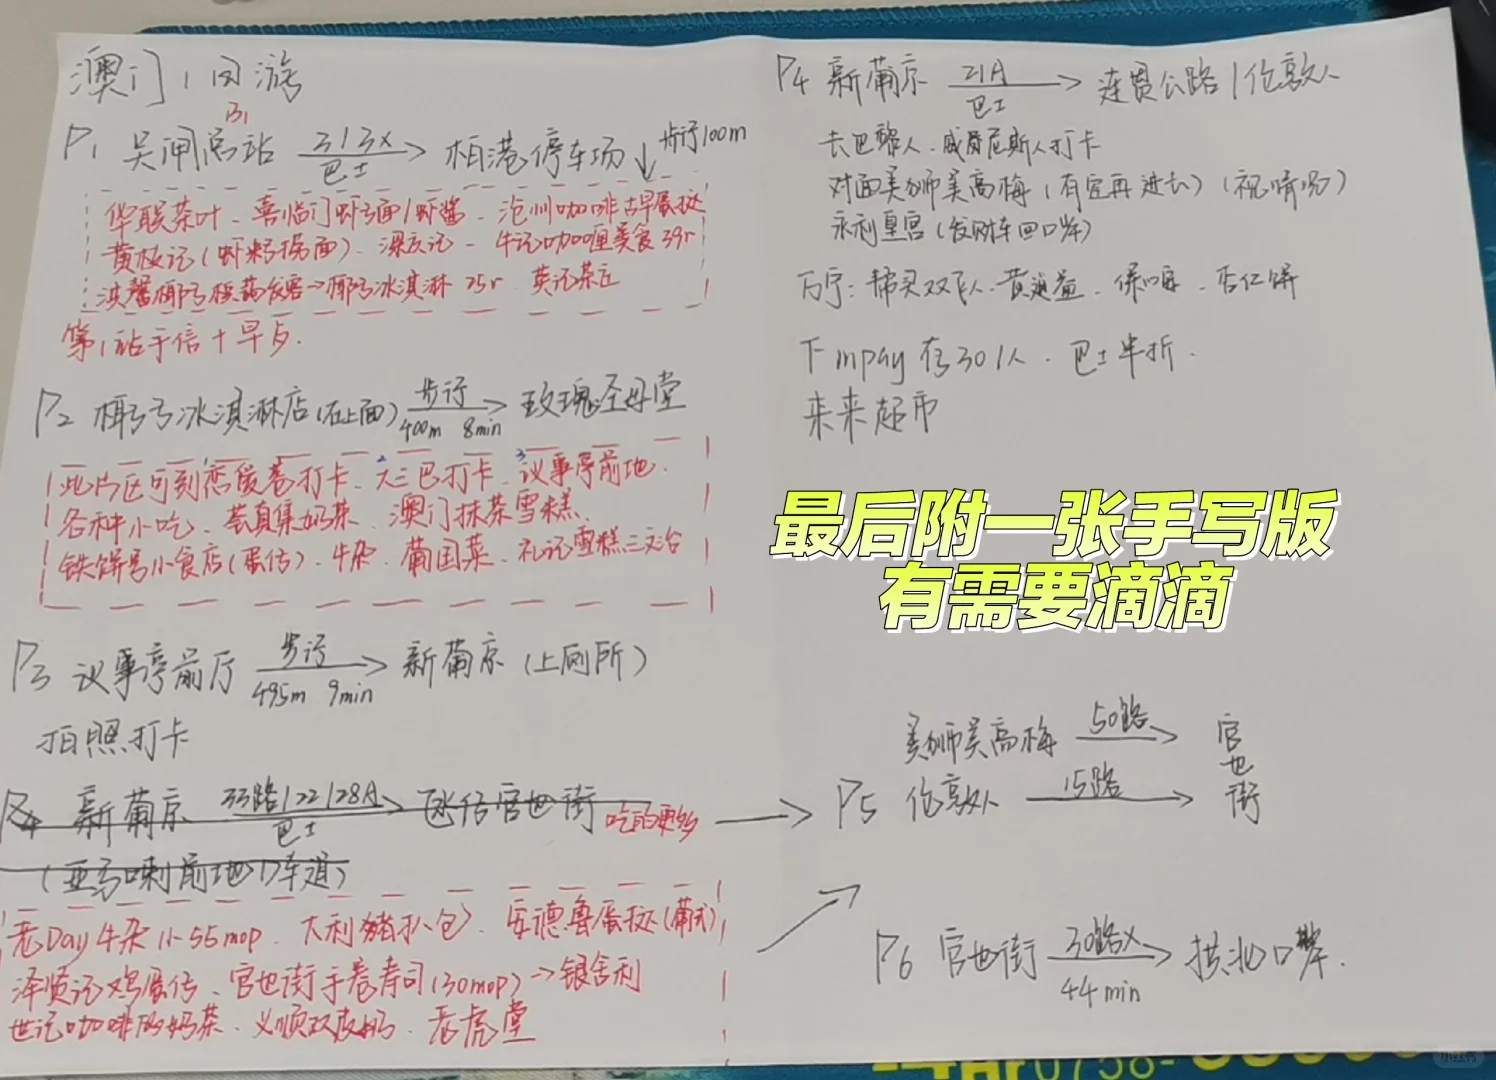 澳门1日游
P1 关闸总站 3/3X 巴士 柏港停车场 步行100m
华联茶叶、喜临门虾子面/虾酱、沧州咖啡古早蛋挞
黄枝记(虾籽捞面)、深庆记、牛记咖喱美食39r
洪馨椰子 椰子冰淇淋 25r 英记茶庄
第1站手信+早点.
P2 椰子冰淇淋店(在上面) 步行 400m 8min 玫瑰圣母堂
此片区可到恋爱巷打卡、大三巴打卡、议事亭前地.
各种小吃、荟真集奶茶、澳门抹茶雪糕
铁饼号小食店(蛋传)、牛杂、葡国菜、礼记雪糕三文治
P3 议事亭前厅 步行 495m 9min 新葡京(上厕所)
拍照打卡
P4 新葡京 33路/22/28A 巴士 氹仔官也街 吃的更多
(亚马喇前地D车道)
老Day牛杂小55mop、大利猪扒包、安德鲁蛋挞(葡式)
泽贤记鸡蛋仔、官也街手卷寿司(30mop)→银舍利
世记咖啡奶茶、义顺双皮奶、老虎堂
P4 新葡京 21A 巴士 连贯公路/伦敦人
去巴黎人、威尼斯人打卡
对面美狮美高梅(有空再进去)(视情况)
永利皇宫(发财车回口岸)
万宁:帮买双飞人、黄道益、保心安、杏仁饼
下mpay存30/人、巴士半折.
来来超市
最后附一张手写版
有需要滴滴
美狮美高梅 50路 官也街
P5 伦敦人 15路
P6 官也街 30路X 44min 拱北口岸.
0758-